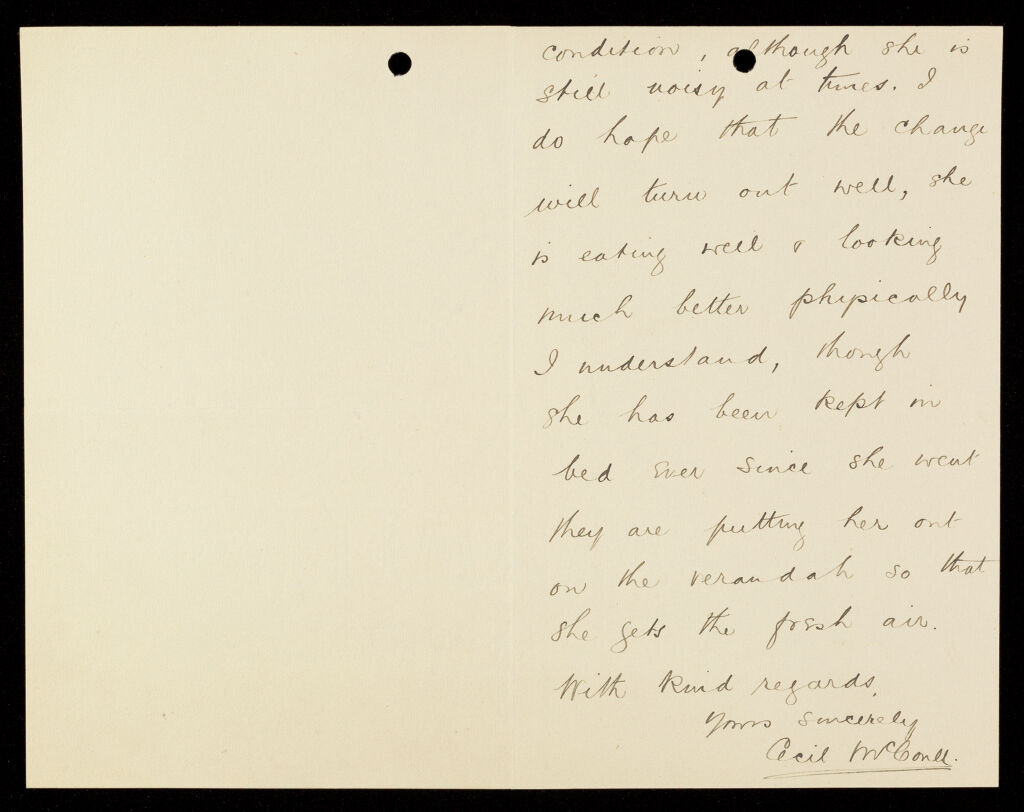 condition, although she is
still noisy at times. I
do hope that the change
will turn out well, she
is eating well & looking
much better phipically
I understand, though
she has been kept in
bed ever since she went
they are putting her out
on the verandah so that
she gets the fresh air.
With kind regards,
Yours sincerely
Cecil